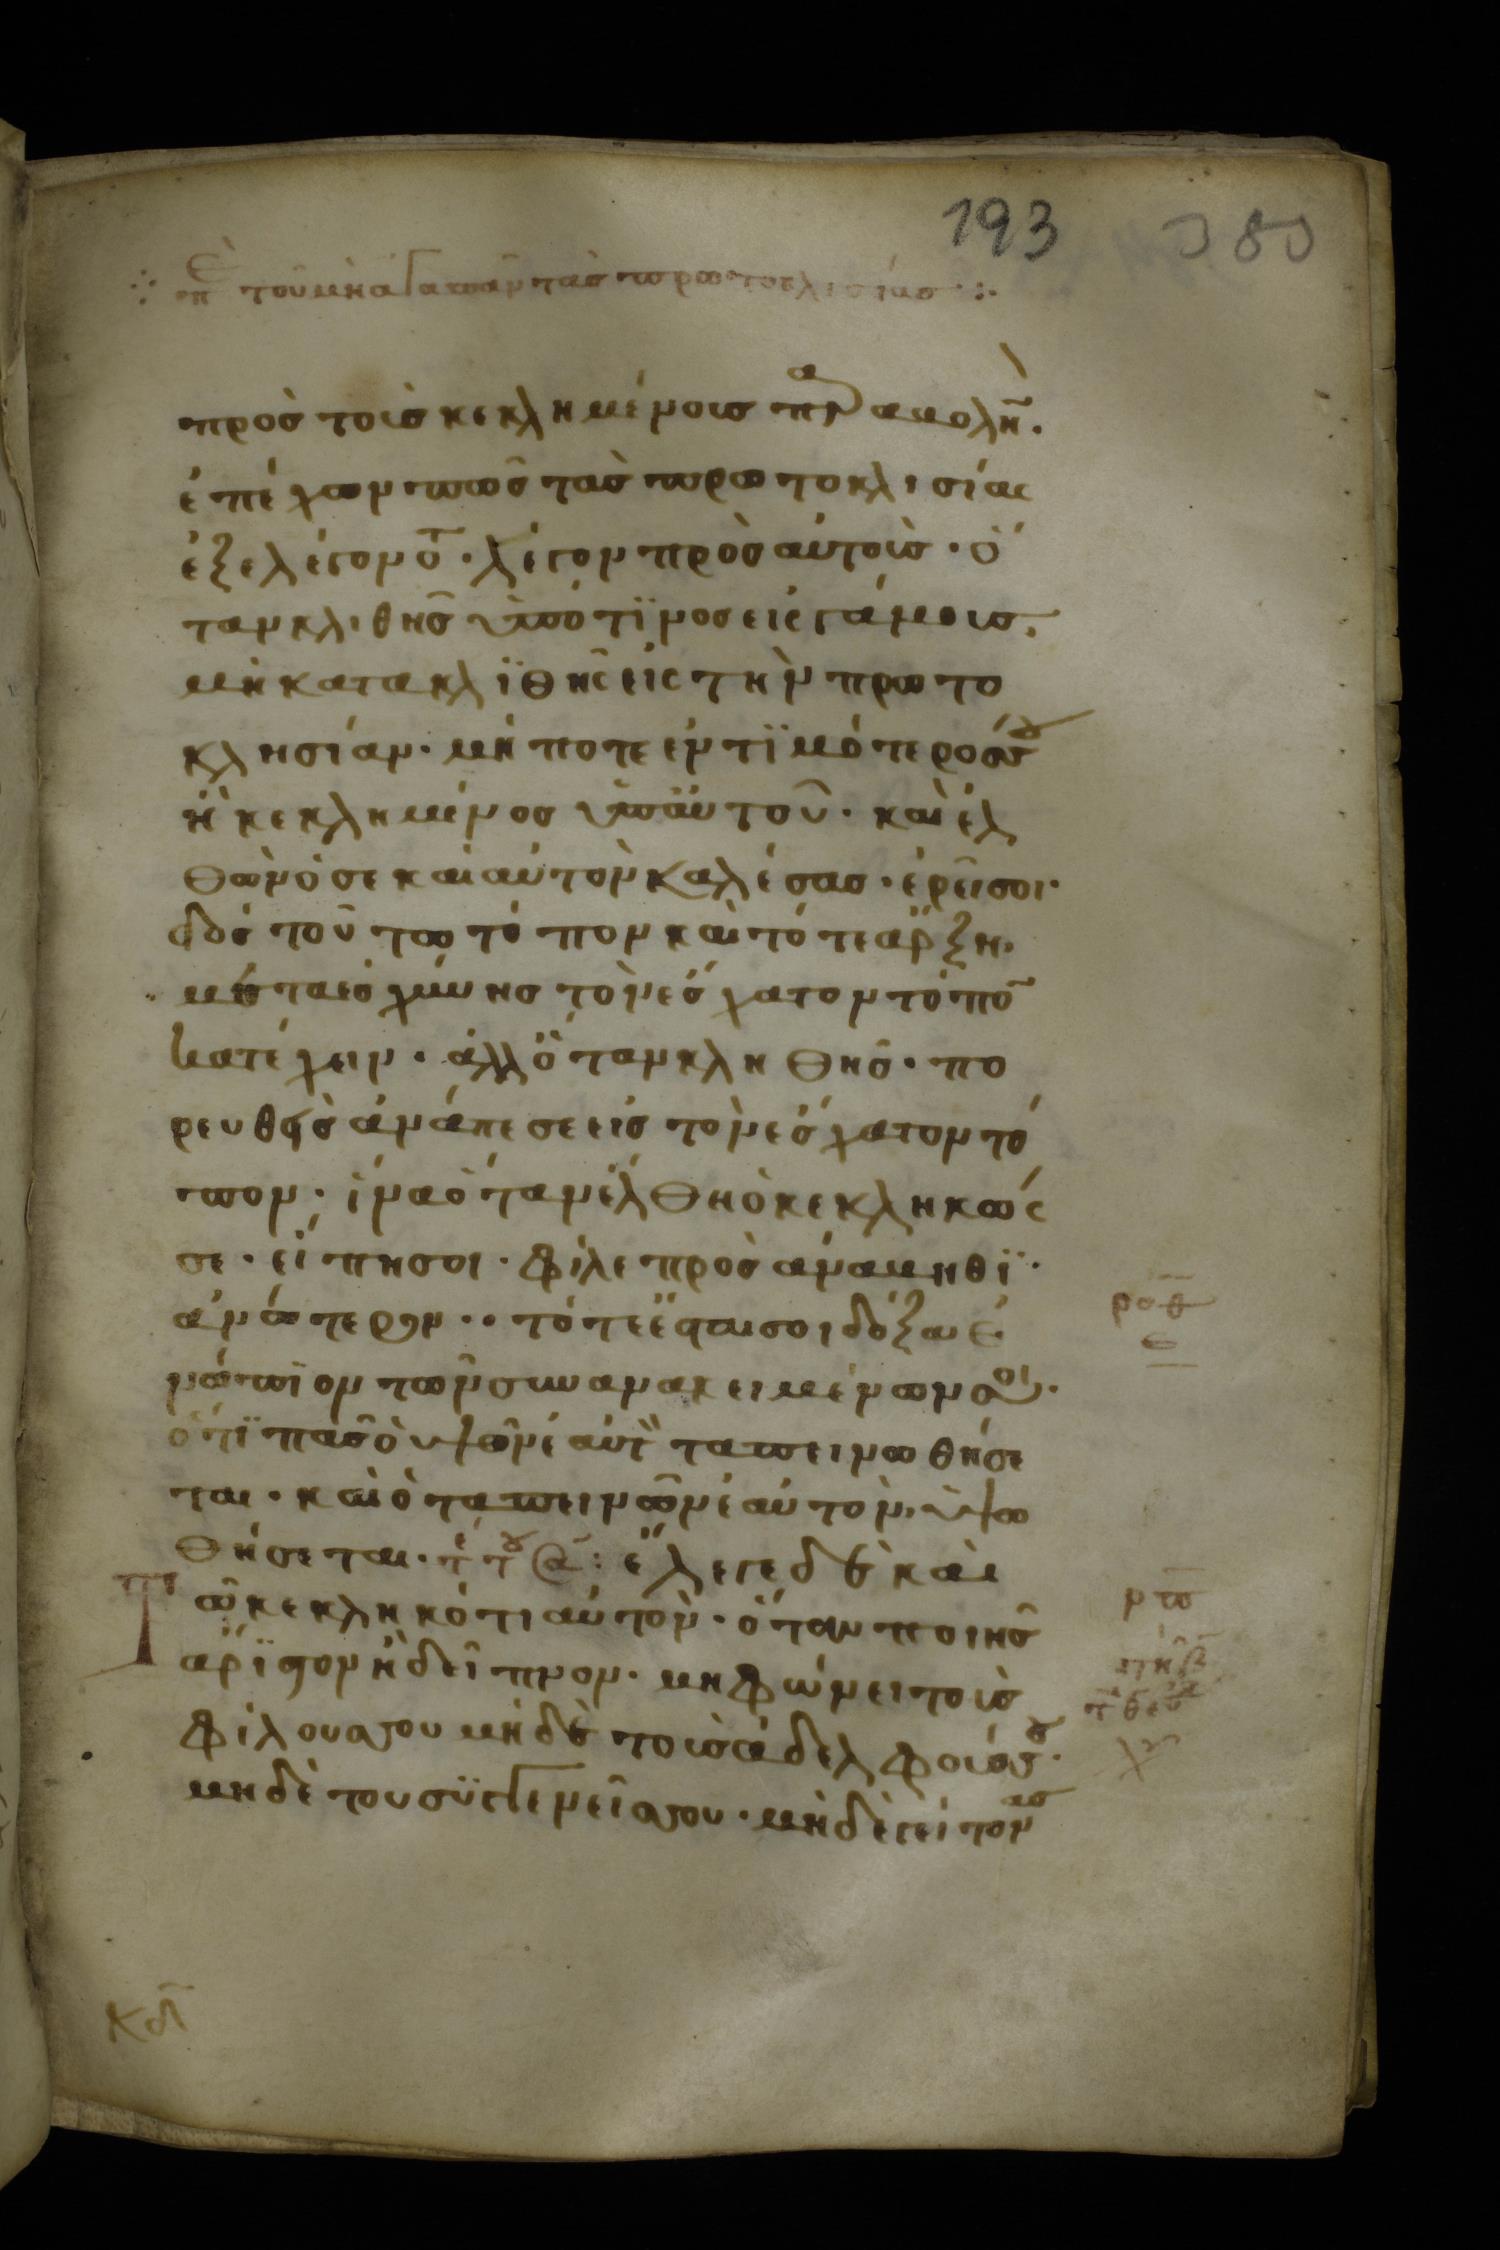 193
τοῦ μὴ ἀγαπᾶν τὰς πρωτοκλισίας
πρὸς τοὺς κεκλημένους πρα αβολὴν.
ἐπέχων πῶς τὰς πρωτοκλισίας
ἐξελέγοντο. λέγον πρὸς αὐτοὺς. ὅ
ταν κλιθῆς ὑπό τϊνος εἰς γάμους.
μὴ κατακλϊθῆς εἰς τὴν πρωτο
κλησίαν. μήποτε ἐντϊμότερός σου
ἢ κεκλημένος ὑπ αὐτοῦ. καὶ ἐλ
θὼν ὁ σε καὶ αὐτὸν καλέσας. ἐρεῖ σοι.
δὸς τούτω τόπον καὶ τότε ἄρξη.
μετὰ ἐσχύνης τὸν ἔσχατον τόπον
κατέχειν. ἀλλ ὅταν κληθῆς. πο
ρευθεὶς ἀνάπεσε εἰς τὸν ἔσχατον τό
πον. ἵνα ὅταν ἔλθη ὁ κεκληκώς
σε. εἴπη σοι. φίλε προσανάβηθϊ.
ἀνώτερον. τότε ἔσται σοι δόξα ἐ
νώπϊον τῶν συνανακειμένων σοι.
ὅτϊ πᾶς ὁ ὑψῶν ἑαυτὸν ταπεινωθήσε
ται. καὶ ὁ ταπεινῶν ἑαυτὸν, ὑψω
θήσεται. ἔλεγε δὲ καὶ
Τῶ κεκληκότι αὐτὸν. ὅταν ποιῆς
ἄρϊστον ἢ δεῖπνον. μὴ φώνει τοὺς
φίλους σου μηδὲ τοὺς ἀδελφούς σου.
μηδὲ τοὺς συγγενεῖς σου. μηδὲ γείτονας